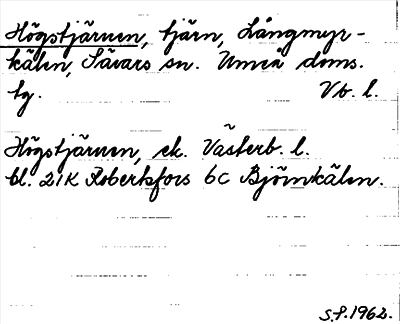 Högstjärnen, tjärn, Långmyr-
kälen, Sävars sn. Umeå doms.
tg. Vb. l.
Högstjärnen, ek. Västerb. l.
bl. 21K Robertsfors 6c Björnkälen.
S.F. 1962.